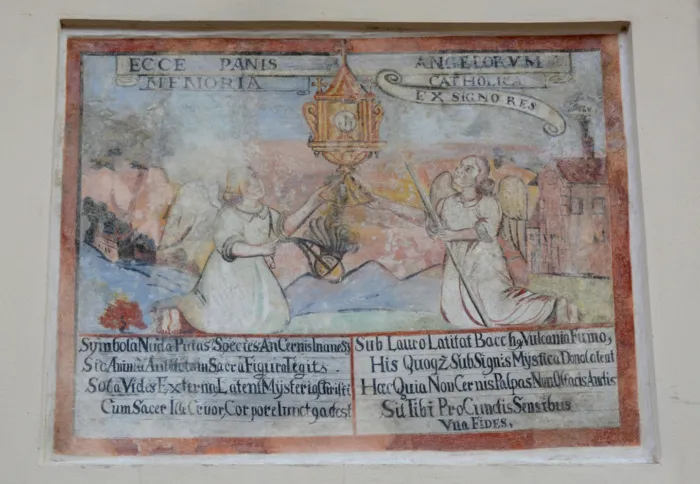 ECCE PANIS
MEMORIA
ANGELORVM
CATHOLICA
EX SIGNO RES
Symbola Nuda Putas? Species An Cernis Inanes?
Sic Anima
Sacra Figura Tegit
Sola Vides Externa Latent Mysteria Christi
Cum Sacer Ille Cruor, Corpore
Sub Lauro Latitat Bacchq, Vulcania Fumo,
His Quoqz Sub Signis Mystica Dona Latent
Hæc Quia Non Cernis Palpas Nun Olfacis Audis
Sit Tibi Pro Cunctis Sensibus
Vna FIDES.